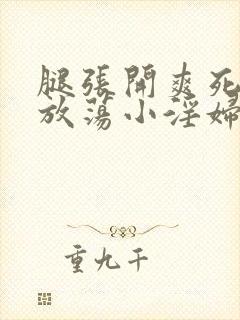 腿張開爽死
放蕩小淫婦
重九千